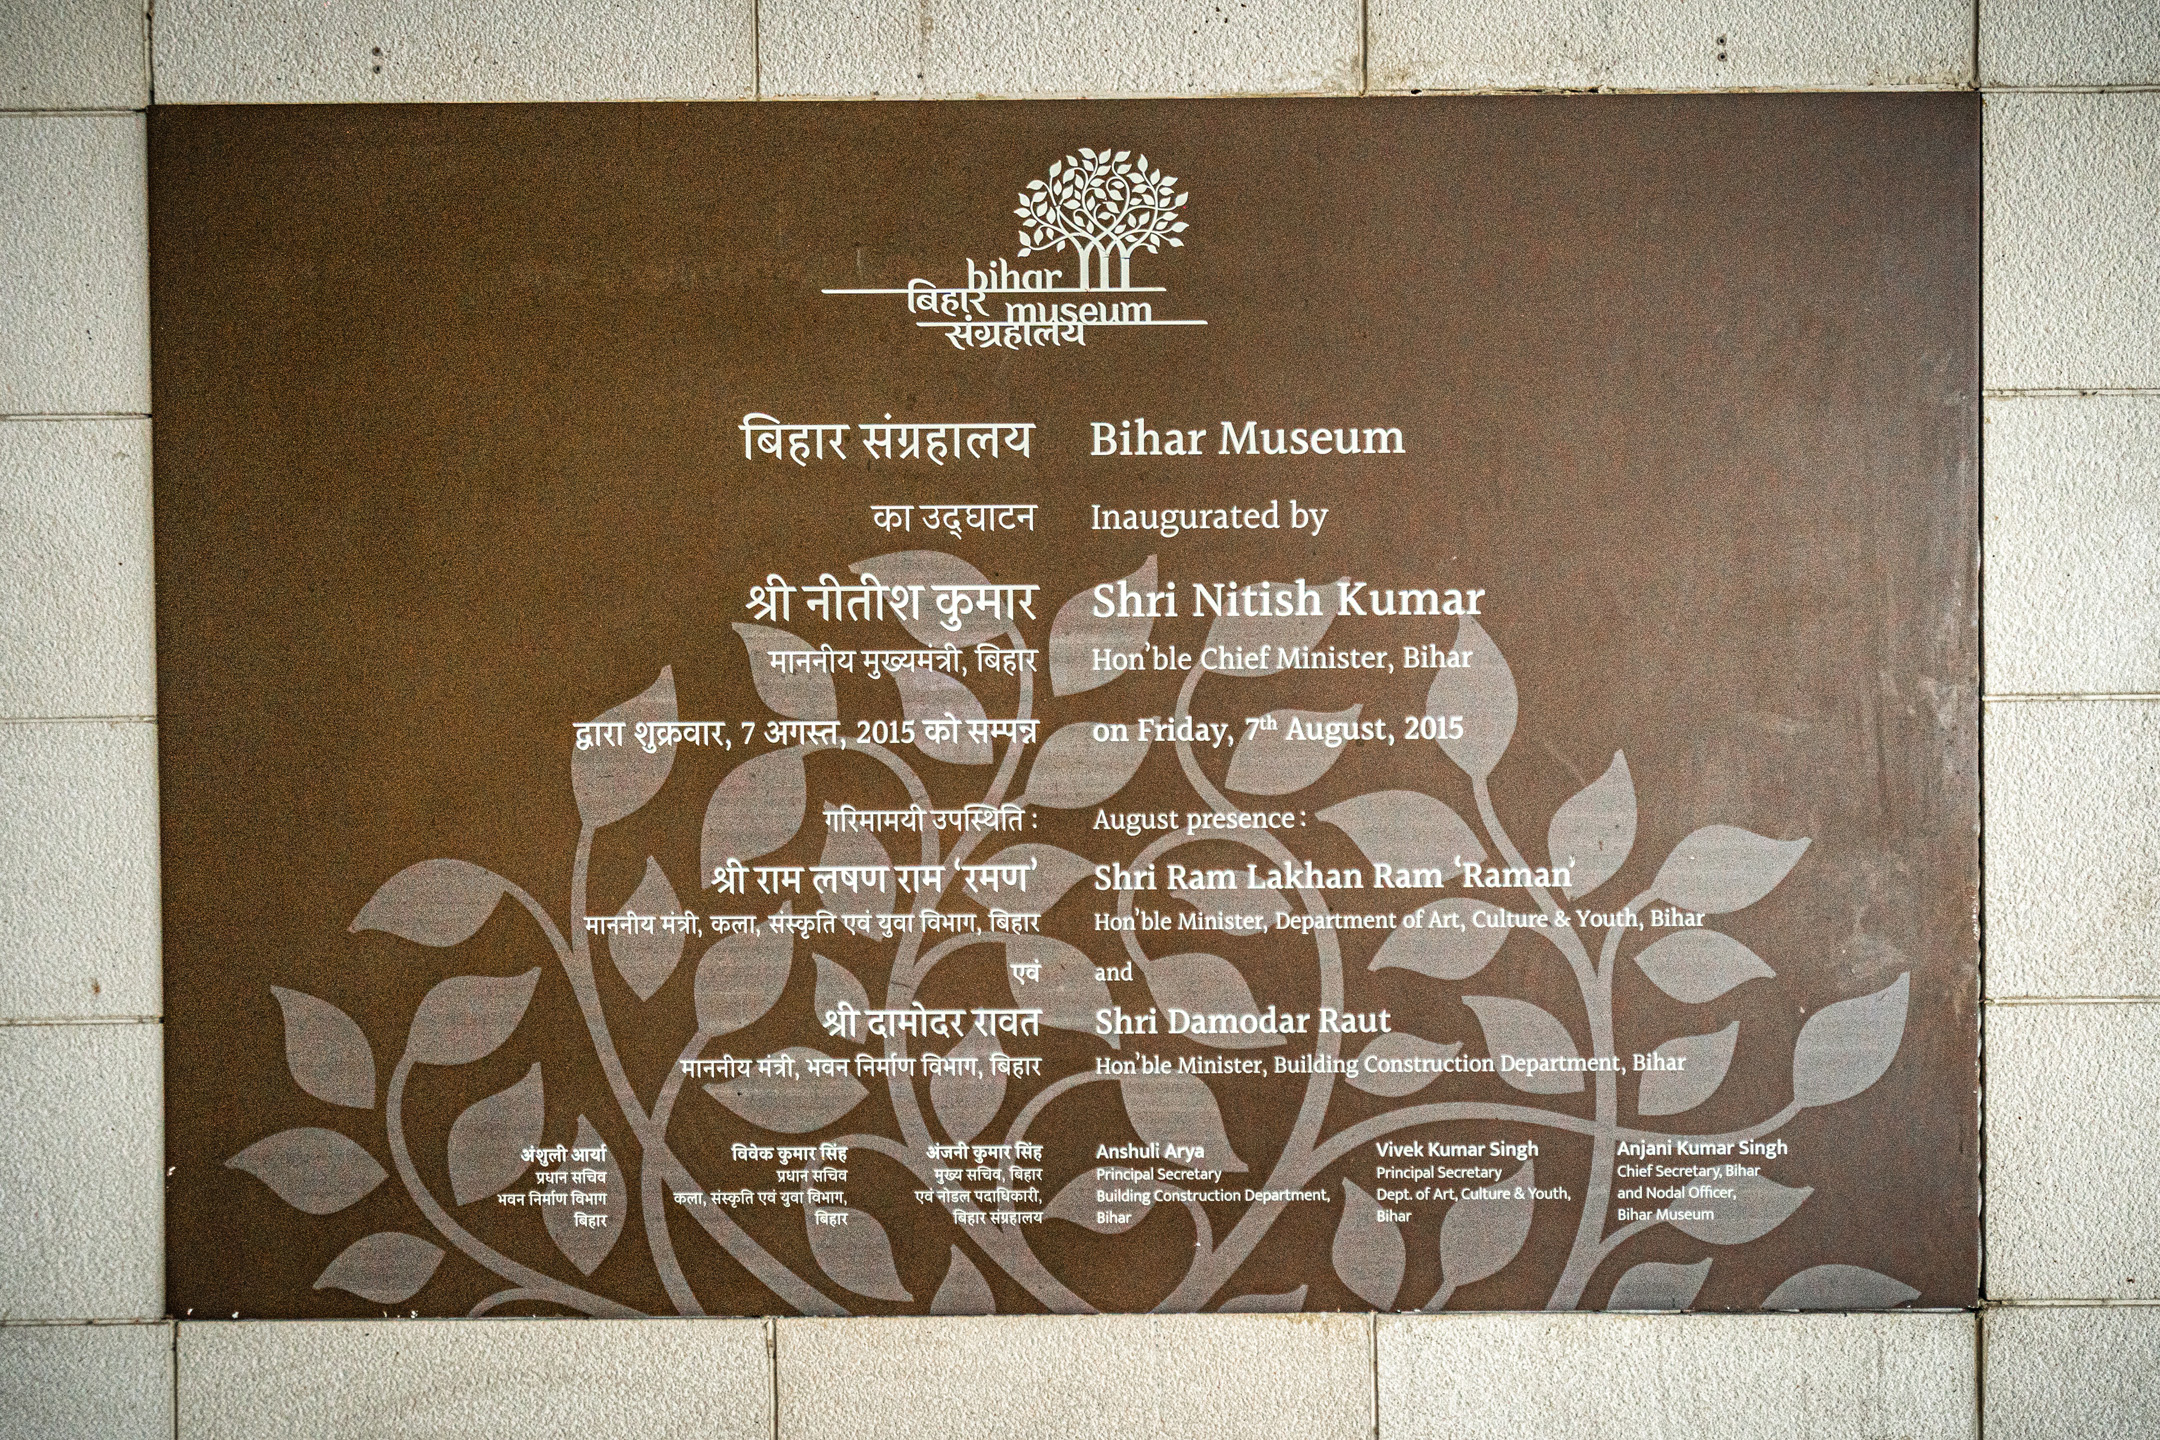 bihar
बिहार museum
संग्रहालय
बिहार संग्रहालय
का उद्घाटन
श्री नीतीश कुमार
माननीय मुख्यमंत्री, बिहार
द्वारा शुक्रवार, 7 अगस्त, 2015 को सम्पन्न
गरिमामयी उपस्थिति :
श्री राम लषण राम ‘रमण’
माननीय मंत्री, कला, संस्कृति एवं युवा विभाग, बिहार
एवं
श्री दामोदर रावत
माननीय मंत्री, भवन निर्माण विभाग, बिहार
अंशुली आर्या
प्रधान सचिव
भवन निर्माण विभाग
बिहार
विवेक कुमार सिंह
प्रधान सचिव
कला, संस्कृति एवं युवा विभाग,
बिहार
अंजनी कुमार सिंह
मुख्य सचिव, बिहार
एवं नोडल पदाधिकारी,
बिहार संग्रहालय
Bihar Museum
Inaugurated by
Shri Nitish Kumar
Hon’ble Chief Minister, Bihar
on Friday, 7th August, 2015
August presence :
Shri Ram Lakhan Ram ‘Raman’
Hon’ble Minister, Department of Art, Culture & Youth, Bihar
and
Shri Damodar Raut
Hon’ble Minister, Building Construction Department, Bihar
Anshuli Arya
Principal Secretary
Building Construction Department,
Bihar
Vivek Kumar Singh
Principal Secretary
Dept. of Art, Culture & Youth,
Bihar
Anjani Kumar Singh
Chief Secretary, Bihar
and Nodal Officer,
Bihar Museum